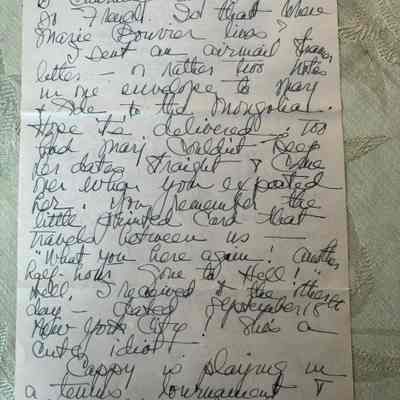 So that where
Marie Bouvrer lives?
I sent an airmail
letter – or rather two notes
in one envelope to Mary
& Sde to the Mongolia.
Hope it's delivered – too
bad Mary couldn't keep
her dates straight & come
over when you expected
her. You remember the
little printed card that
traveled between us —
"What you here again! Another
half-hour gone to Hell!"
Well, I received it the other
day – dated September 18
New York City! She's a
cute idiot –
Cappy is playing in
a tennis tournament &